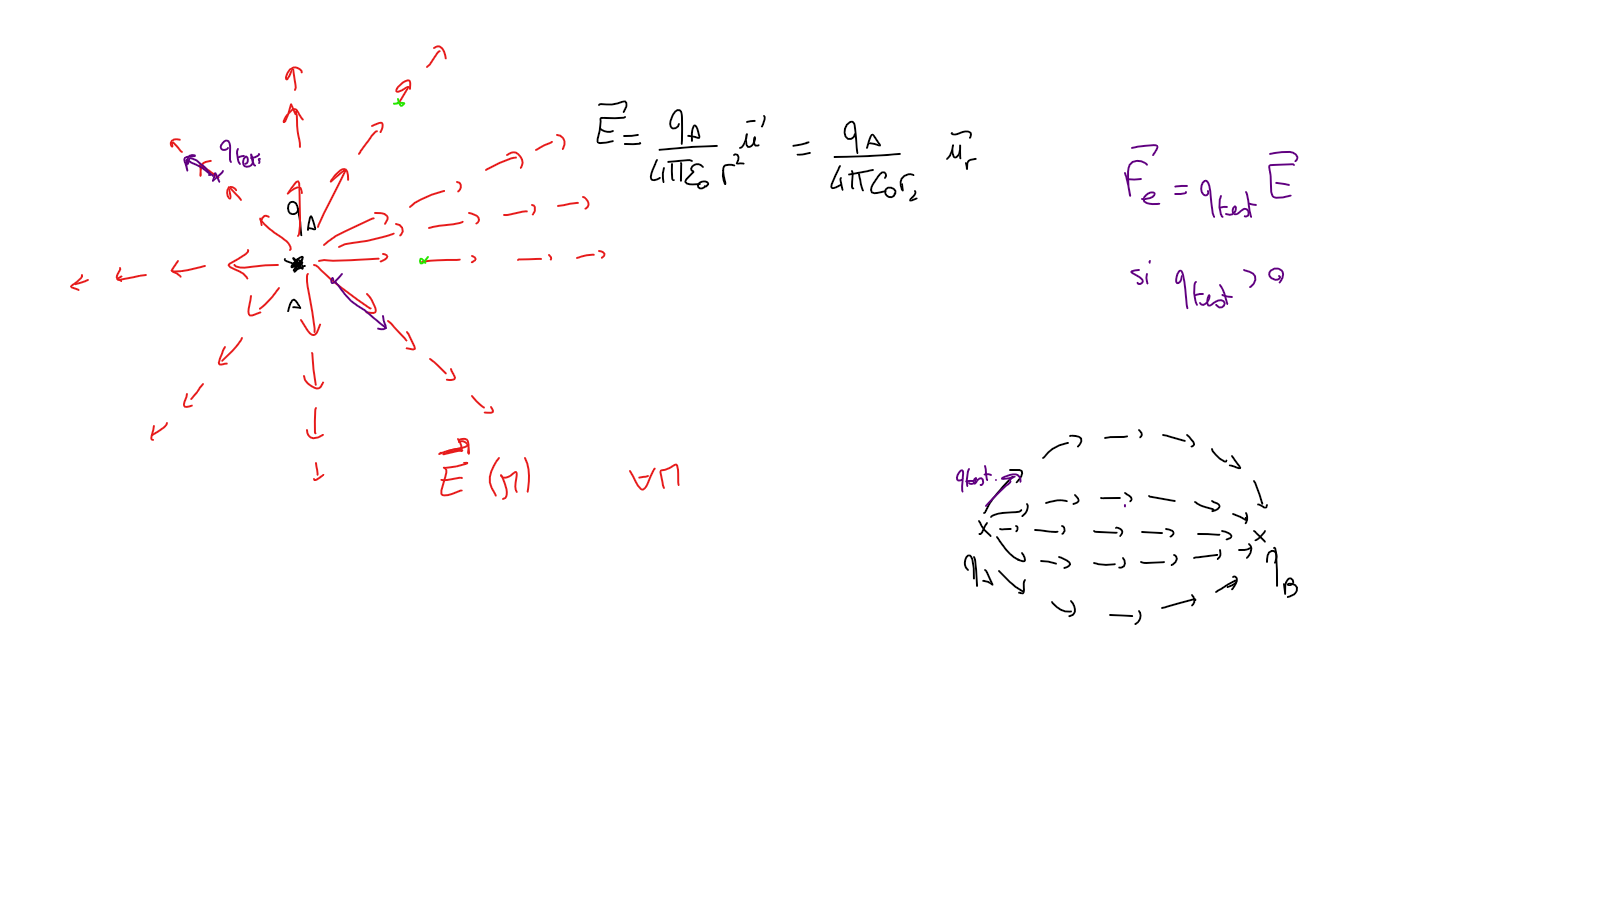 q_A
A
q_test
\vec{E} = \frac{q_A}{4\pi\varepsilon_0 r^2} \vec{u} = \frac{q_A}{4\pi\varepsilon_0 r^2} \vec{u}_r
\vec{F}_e = q_{test} \vec{E}
si q_{test} > 0
\vec{E} (M) ∀M
q_test
q_A
q_B